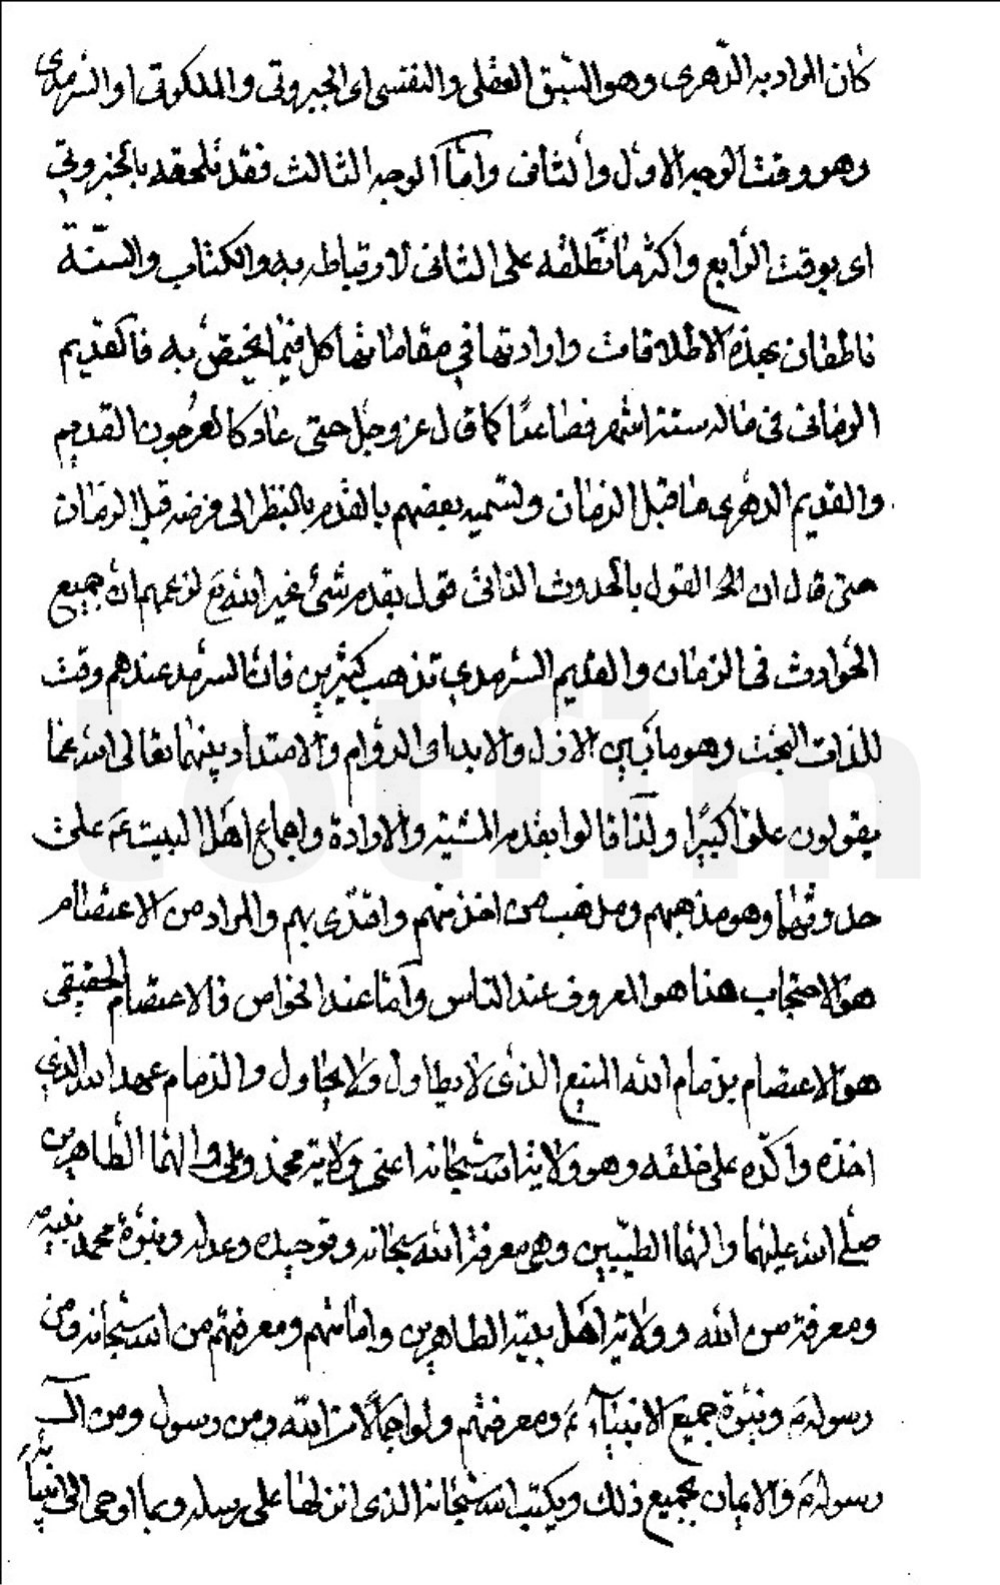 كان المراد به الدهرى وهو السبق العقلى والنفسى اى الجبروتى والملكوتى او السرمدى
وهو وقت الوجه الاول والثانى واما الوجه الثالث فقد نلحقه بالجبروتى
اى بوقت الرابع واكثر ما نطلقه على الثانى لارتباطه به والكتاب والسنة
ناطقان بهذه الاطلاقات وارادتها فى مقاماتها كل فيما يختص به فالقديم
الزمانى فى ماله ستة اشهر فصاعدًا كما قال عز وجل حتى عاد كالعرجون القديم
والقديم الدهرى ما قبل الزمان وتسميه بعضهم بالقدم بالنظر الى فرضه قبل الزمان
حتى قال ان القول بالحدوث الذاتى قول بقدم شئ غير الله تع لزعمهم ان جميع
الحوادث فى الزمان والقديم السرمدى مذهب كثيرين فان السرمد عندهم وقت
للذات البحت وهو ما بين الازل والابد او الدوام والامتداد بينهما تعالى الله عما
يقولون علوّا كبيرًا ولذا قالوا بقدم المشية والارادة واجماع اهل البيت ع على
حدوثها وهو مذهبهم ومذهب من اخذ منهم واقتدى بهم والمراد من الاعتصام
هو الاحتجاب هنا هو المعروف عند الناس واما عند الخواص فالاعتصام الحقيقى
هو الاعتصام بذمام الله المنيع الذى لا يطاول ولا يحاول والذمام عهد الله الذى
اخذه واكّده على خلقه وهو ولاية الله سبحانه اعنى ولاية محمد وعلى والهما الطاهرين
صلى الله عليهما والهما الطيّبين وهى معرفة الله سبحانه وتوحيده وعدله ونبوة محمد نبيه ص
ومعرفته من الله وولاية اهل بيته الطاهرين وامامتهم ومعرفتهم من الله سبحانه ومن
رسوله ص ونبوة جميع الانبيآء ع ومعرفتهم ولو اجمالا من الله ومن رسوله ومن آل
رسوله ص والايمان بجميع ذلك وبكتب الله سبحانه الذى انزلها على رسله وبما اوحى الى انبيائه